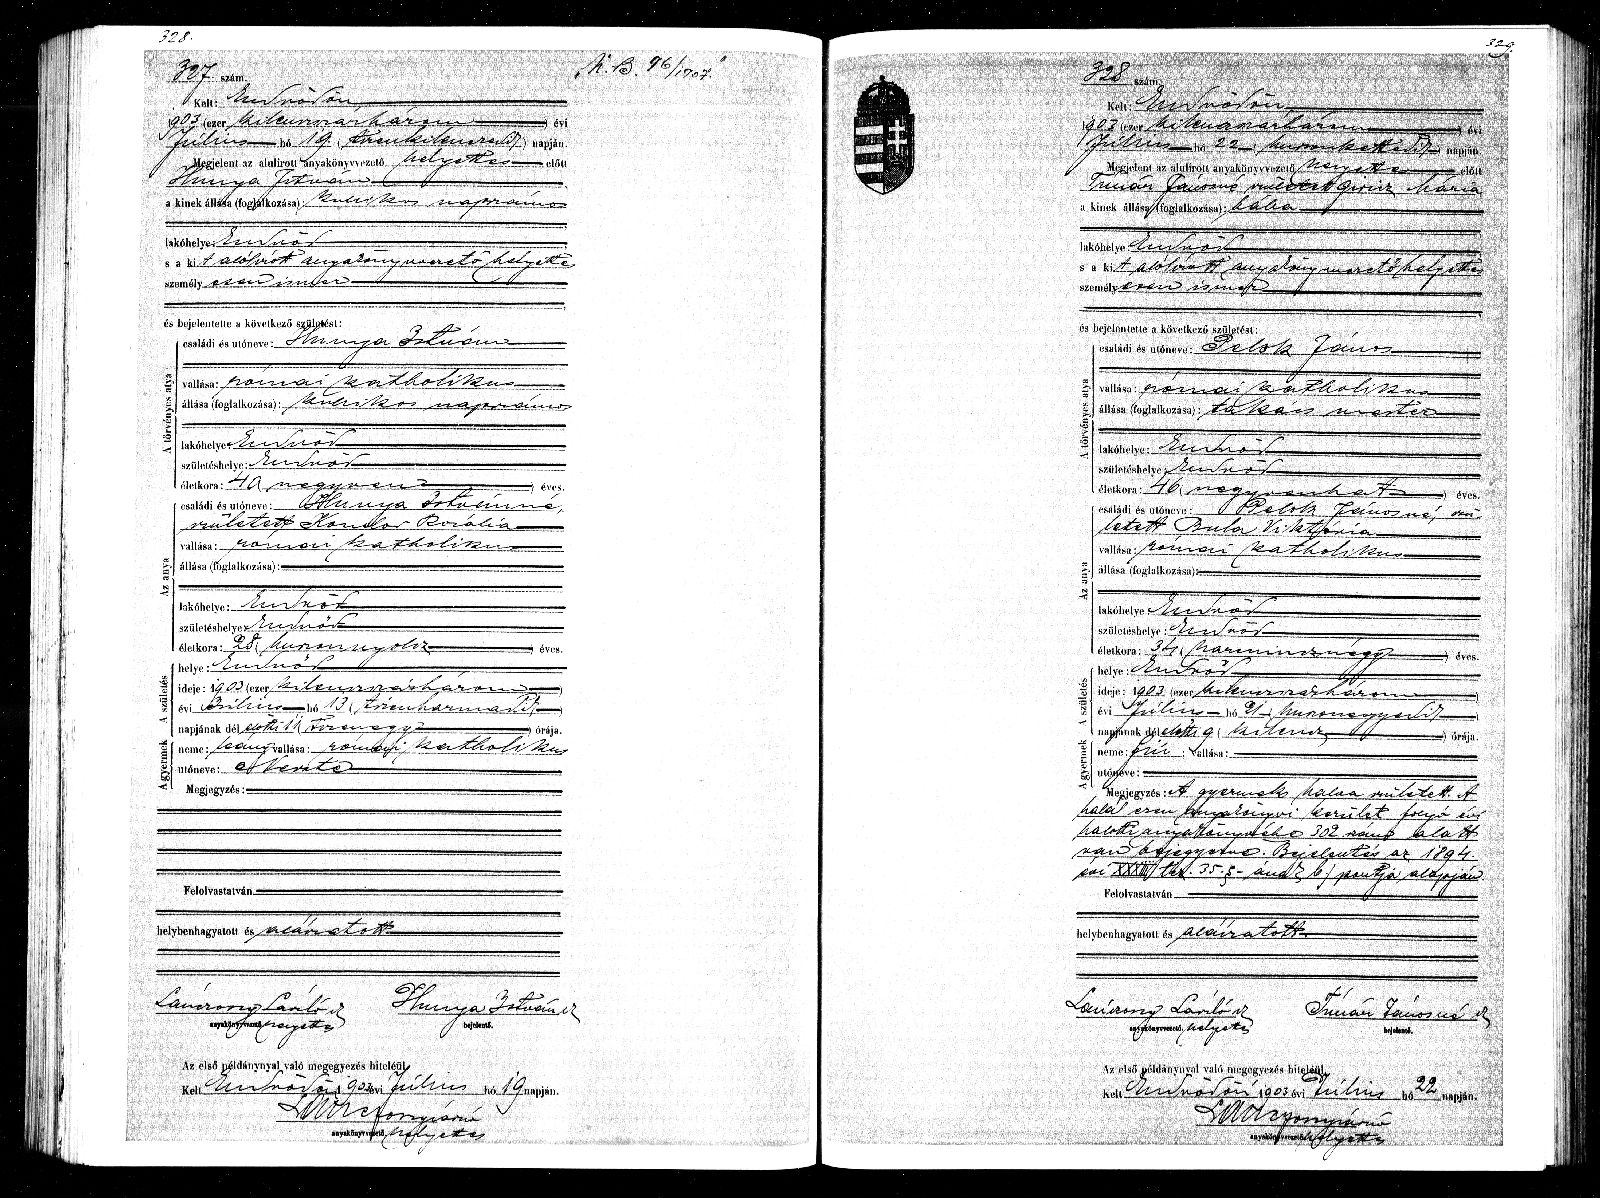 328.
327 szám.
„K. B. 96/1907."
Kelt: Endrődön
1903 (ezer kilencszázhárom) évi
Július hó 19 (tizenkilencedik) napján
Megjelent az alulirott anyakönyvvezető helyettes előtt
Hunya István
a kinek állása (foglalkozása): kubikos napszámos
lakóhelye: Endrőd
s a kit alólirott anyakönyvvezető helyettes
személyesen ismer
és bejelentette a következő születést:
A törvényes atya
családi és utóneve: Hunya István
vallása: római katholikus
állása (foglalkozása): kubikos napszámos
lakóhelye: Endrőd
születéshelye: Endrőd
életkora: 40 (negyven) éves.
Az anya
családi és utóneve: Hunya Istvánné,
született Kondor Rozália
vallása: római katholikus
állása (foglalkozása):
lakóhelye: Endrőd
születéshelye: Endrőd
életkora: 28 (huszonnyolc) éves.
A gyermek A születés
helye: Endrőd
ideje: 1903 (ezer kilencszázhárom)
évi Július hó 13 (tizenharmadik)
napjának dél előtti 11 (tizenegy) órája.
neme: leány vallása: római katholikus
utóneve: Veronka
Megjegyzés:
Felolvastatván
helybenhagyatott és aláiratott
László Hunya István
anyakönyvvezető helyettes bejelentő.
Az első példánynyal való megegyezés hiteléül
Kelt Endrődön 1903 évi Július hó 19 napján.
anyakönyvvezető helyettes
329.
328 szám
Kelt: Endrődön
1903 (ezer kilencszázhárom) évi
Július hó 22 (huszonkettedik) napján
Megjelent az alulirott anyakönyvvezető helyettes előtt
Jánosné született Mária
a kinek állása (foglalkozása): bába
lakóhelye Endrőd
s a kit alólirott anyakönyvvezető helyettes
személyesen ismer
és bejelentette a következő születést:
A törvényes atya
családi és utóneve: Pelok János
vallása: római katholikus
állása (foglalkozása): takács mester
lakóhelye: Endrőd
születéshelye: Endrőd
életkora: 46 (negyvenhat) éves.
Az anya
családi és utóneve: Pelok Jánosné, szü-
letett Bula Viktória
vallása: római katholikus
állása (foglalkozása):
lakóhelye Endrőd
születéshelye: Endrőd
életkora: 34 (harmincznégy) éves.
A gyermek A születés
helye: Endrőd
ideje: 1903 (ezer kilencszázhárom)
évi Július hó 21 (huszonegyedik)
napjának dél előtti 9 (kilencz) órája.
neme: fiú; vallása:
utóneve:
Megjegyzés: A gyermek halva született. A
halál ezen anyakönyvi kerület folyó évi
halotti anyakönyvébe 302 szám alatt
van bejegyezve. Bejelentés az 1894.
évi XXXIII t.cz. 35. §- ának b) pontja alapján
Felolvastatván
helybenhagyatott és aláiratott
László Jánosné
anyakönyvvezető, helyettes bejelentő.
Az első példánynyal való megegyezés hiteléül
Kelt Endrődön 1903 évi Július hó 22 napján.
anyakönyvvezető, helyettes